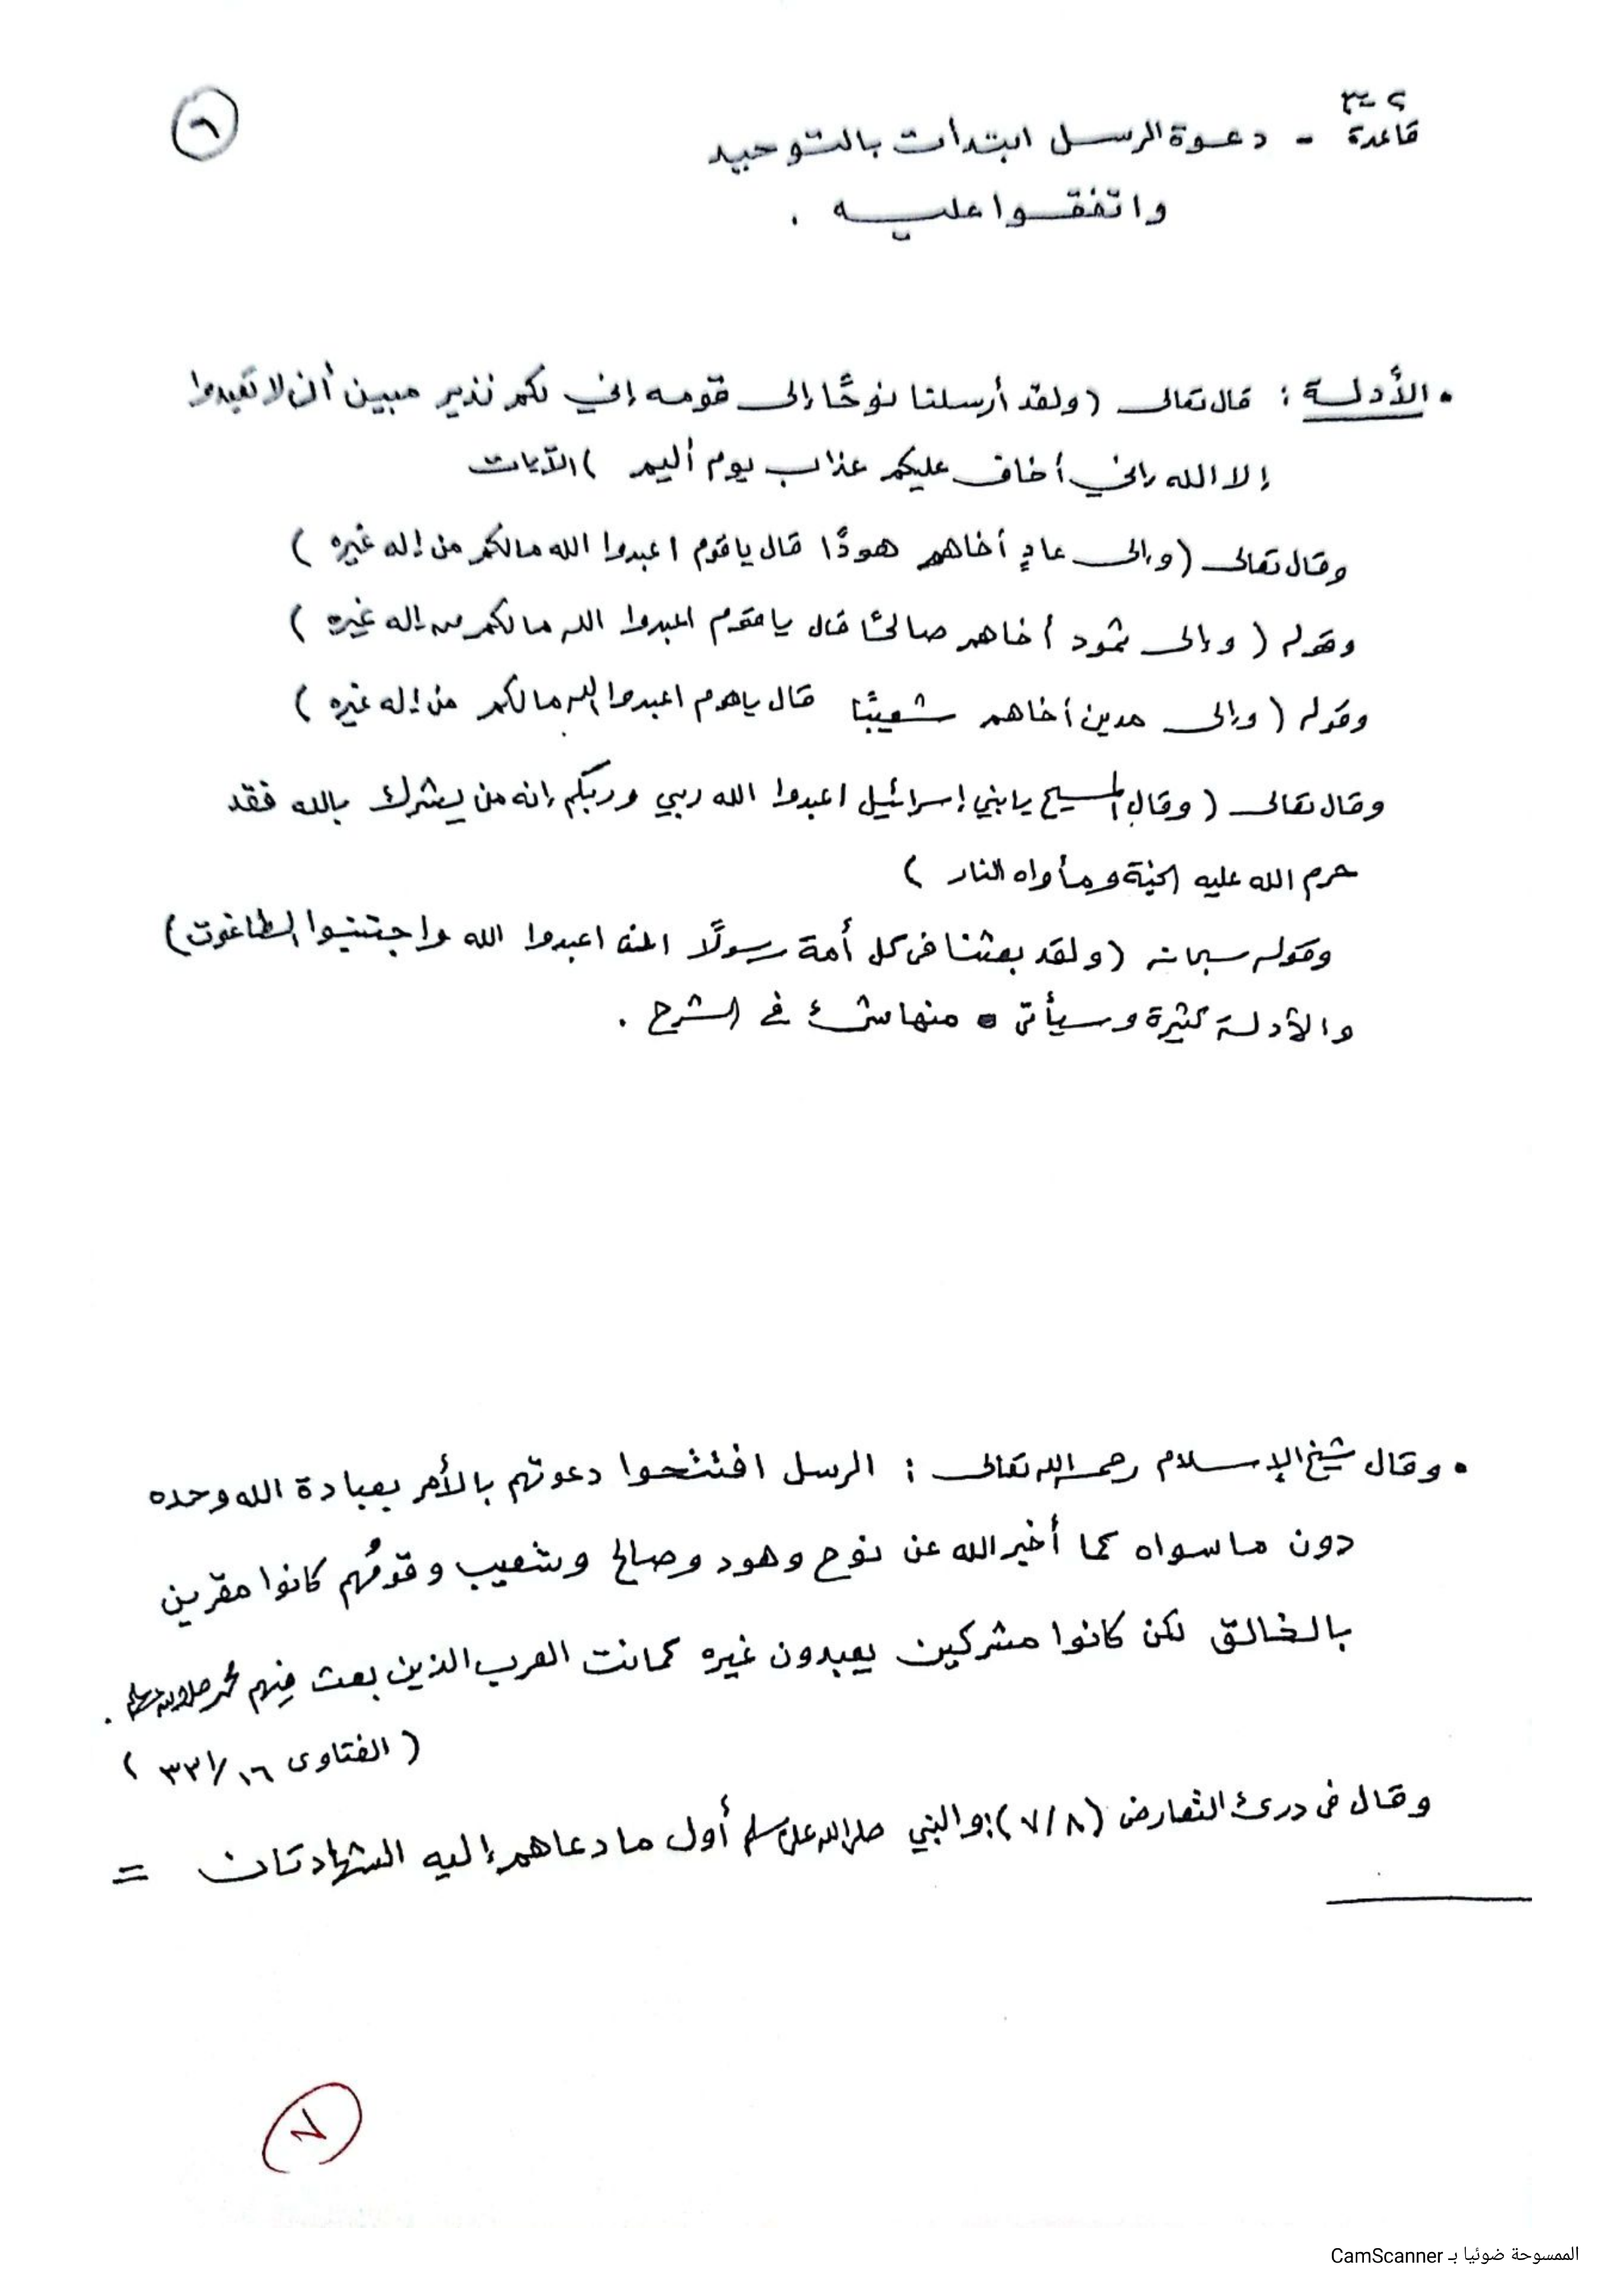 ٦
٢-٣
قاعدة - دعوة الرسل ابتدأت بالتوحيد
واتفقوا عليه .
• الأدلة : قال تعالى (ولقد أرسلنا نوحًا إلى قومه إني لكم نذير مبين أن لا تعبدوا
إلا الله إني أخاف عليكم عذاب يوم أليم ) الآيات
وقال تعالى (وإلى عادٍ أخاهم هودًا قال ياقوم اعبدوا الله مالكم من إله غيره )
وقوله ( وإلى ثمود أخاهم صالحًا قال ياقوم اعبدوا الله مالكم من إله غيره )
وقوله ( وإلى مدين أخاهم شعيبًا قال ياقوم اعبدوا الله مالكم من إله غيره )
وقال تعالى ( وقال المسيح يابني إسرائيل اعبدوا الله ربي وربكم إنه من يشرك بالله فقد
حرم الله عليه الجنة ومأواه النار )
وقوله سبحانه (ولقد بعثنا في كل أمة رسولًا أن اعبدوا الله واجتنبوا الطاغوت)
والأدلة كثيرة وسيأتي منها شيء في الشرح .
• وقال شيخ الإسلام رحمه الله تعالى : الرسل افتتحوا دعوتهم بالأمر بعبادة الله وحده
دون ماسواه كما أخبر الله عن نوح وهود وصالح وشعيب وقومُهم كانوا مقرين
بالخالق لكن كانوا مشركين يعبدون غيره كما كانت العرب الذين بعث فيهم محمد صلى الله عليه وسلم .
( الفتاوى ١٦/ ٣٣٢ )
وقال في درئ التعارض (٧/٨): والنبي صلى الله عليه وسلم أول مادعاهم إليه الشهادتان =
٧
الممسوحة ضوئيا بـ CamScanner